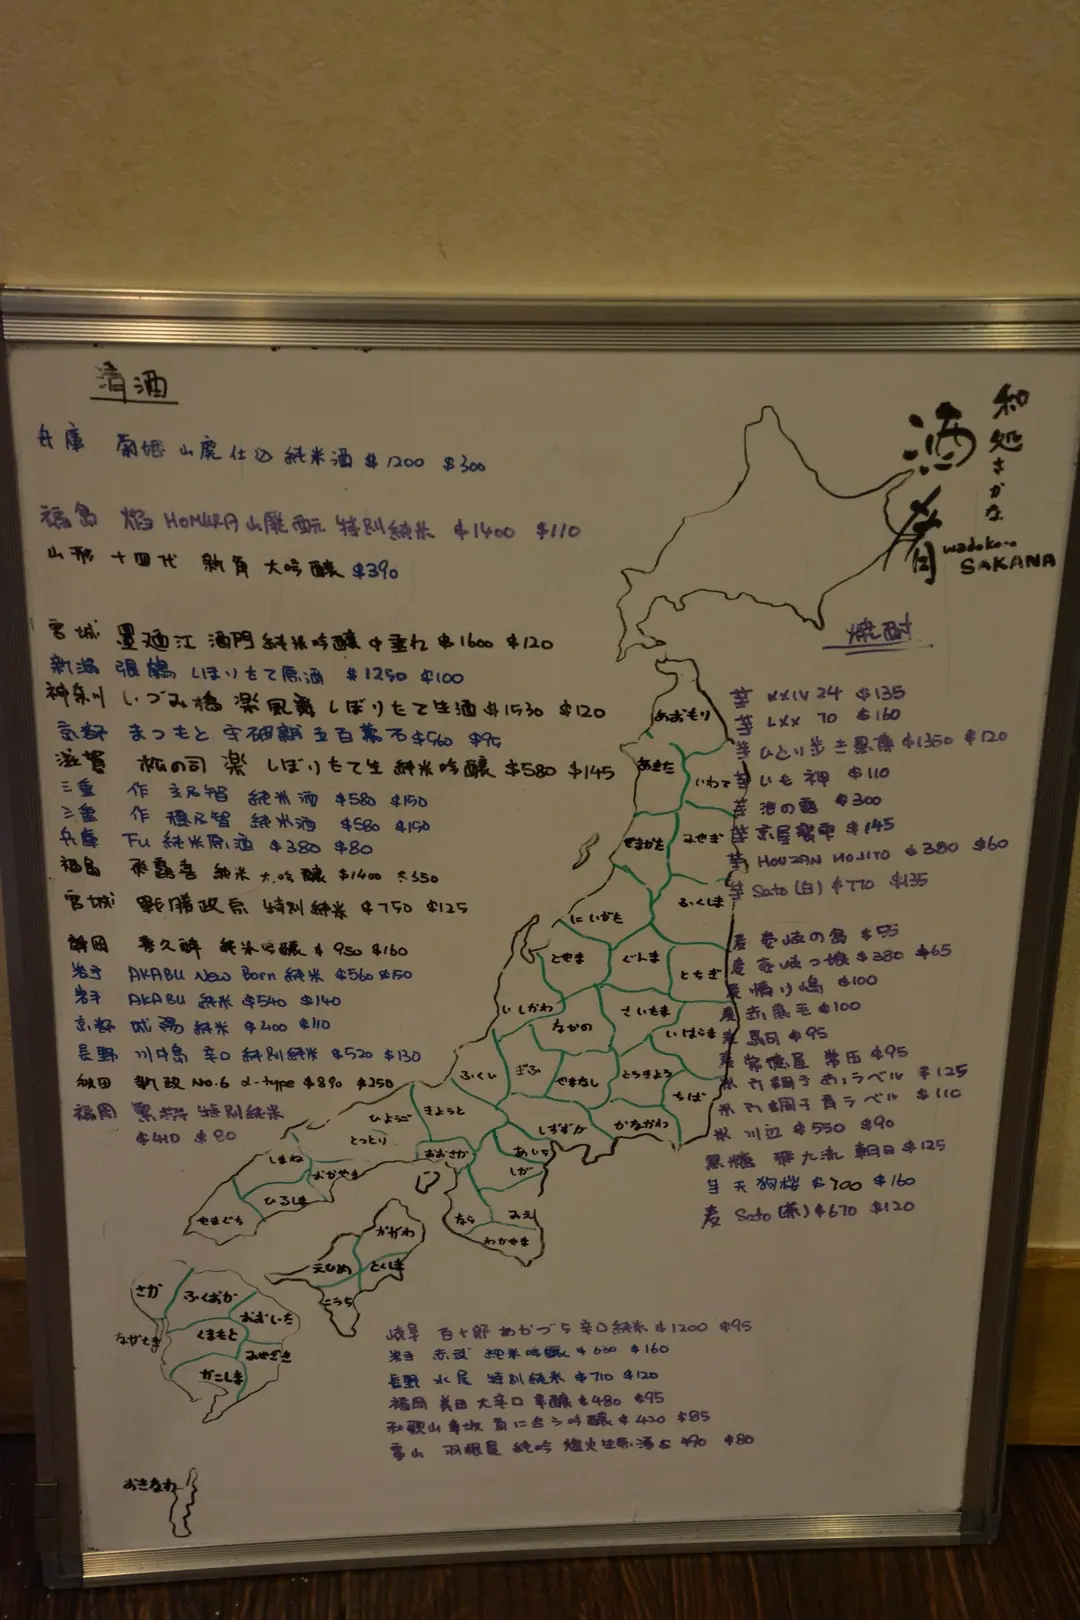 清酒
兵庫 菊姫 山廃仕込 純米酒 $1200 $300
福島 焔 HOMURA 山廃 特別純米 $1400 $110
山形 十四代 新角 大吟醸 $390
宮城 墨廼江 酒門 純米吟醸 中垂れ $1600 $120
新潟 張鶴 しぼりたて原酒 $1250 $100
神奈川 いづみ橋 楽風舞 しぼりたて生酒 $1530 $120
京都 まつもと 守破離 五百万石 $560 $95
滋賀 松の司 楽 しぼりたて生 純米吟醸 $580 $145
三重 作 玄乃智 純米酒 $580 $150
三重 作 穂乃智 純米酒 $580 $150
兵庫 Fu 純米原酒 $380 $80
福島 飛露喜 純米大吟醸 $1400 $350
宮城 戦勝政宗 特別純米 $750 $125
静岡 喜久酔 純米吟醸 $950 $160
岩手 AKABU New Born 純米 $560 $150
岩手 AKABU 純米 $540 $140
京都 城陽 純米 $400 $110
長野 川中島 辛口 特別純米 $520 $130
秋田 新政 No.6 α-type $890 $250
福岡 特別純米
$410 $80
和処さかな
酒肴
wadokoro
SAKANA
焼酎
芋 XXIV 24 $135
芋 LXX 70 $160
芋 ひとり歩き 黒薄 $1350 $120
芋 いも神 $110
芋 $300
芋 京屋 $145
芋 HOUZAN MOJITO $380 $60
芋 Sato (白) $770 $135
麦 壱岐の島 $95
麦 壱岐っ娘 $380 $65
麦 $100
麦 赤鹿毛 $100
$95
麦 常徳屋 常圧 $95
米 九州 ラベル $125
米 青ラベル $110
米 川辺 $550 $90
黒糖 朝日 $125
芋 天狗櫻 $700 $160
麦 Sato (茶) $670 $120
あおもり
あきた
いわて
やまがた
みやぎ
ふくしま
にいがた
とやま
ぐんま
とちぎ
いしかわ
ながの
さいたま
いばらき
ふくい
ぎふ
やまなし
とうきょう
ちば
しずおか
かながわ
ひょうご
きょうと
とっとり
おおさか
あいち
しが
しまね
おかやま
ひろしま
やまぐち
なら
みえ
わかやま
かがわ
えひめ
とくしま
こうち
さが
ふくおか
おおいた
ながさき
くまもと
みやざき
かごしま
おきなわ
岐阜 百十郎 あかづら 辛口純米 $1200 $95
岩手 赤武 純米吟醸 $630 $160
長野 水尾 特別純米 $710 $120
福岡 美田 大辛口 $480 $95
和歌山 車坂 魚に合う吟醸 $420 $85
富山 羽根屋 純吟 煌火生原酒 $490 $80